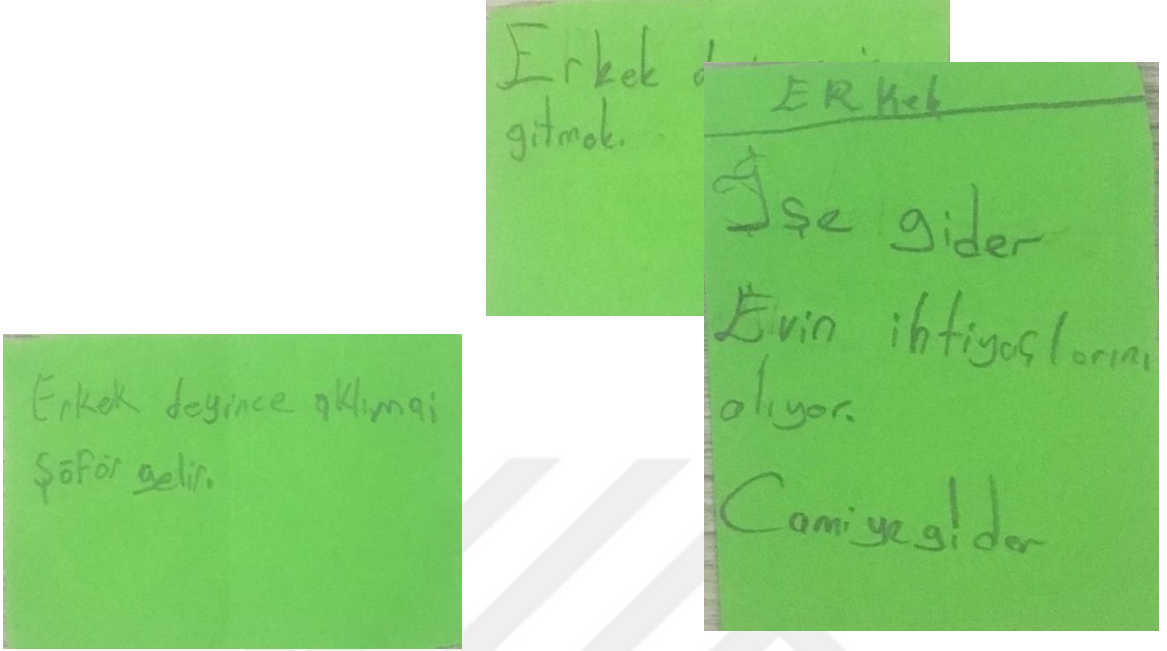 Erkek
gitmek.
ERKek
İşe gider
Evin ihtiyaçlarını
alıyor.
Camiye gider
Erkek deyince aklıma
şöför gelir.